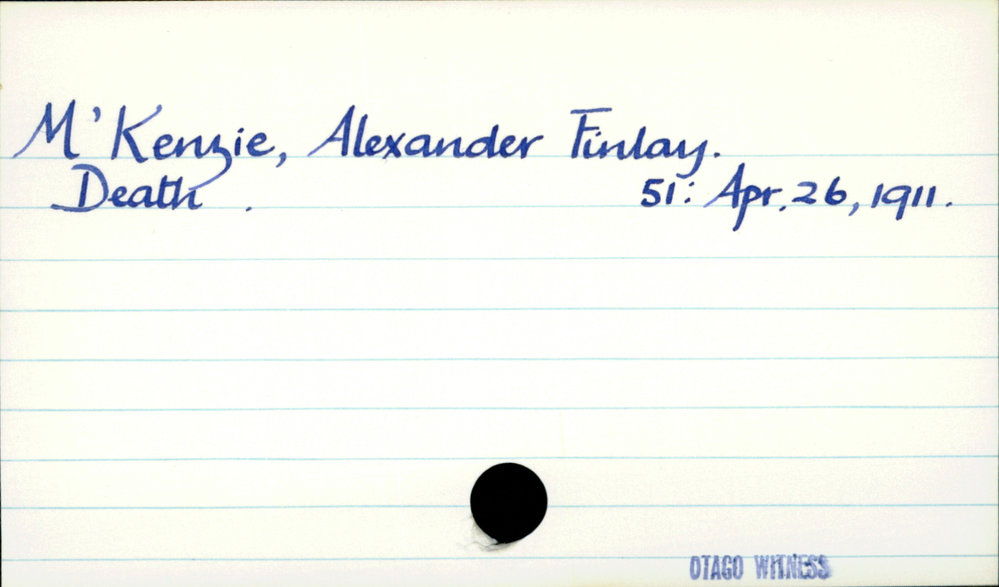 M'Kenzie, Alexander Finlay.
Death . 51: Apr. 26, 1911.
OTAGO WITNESS